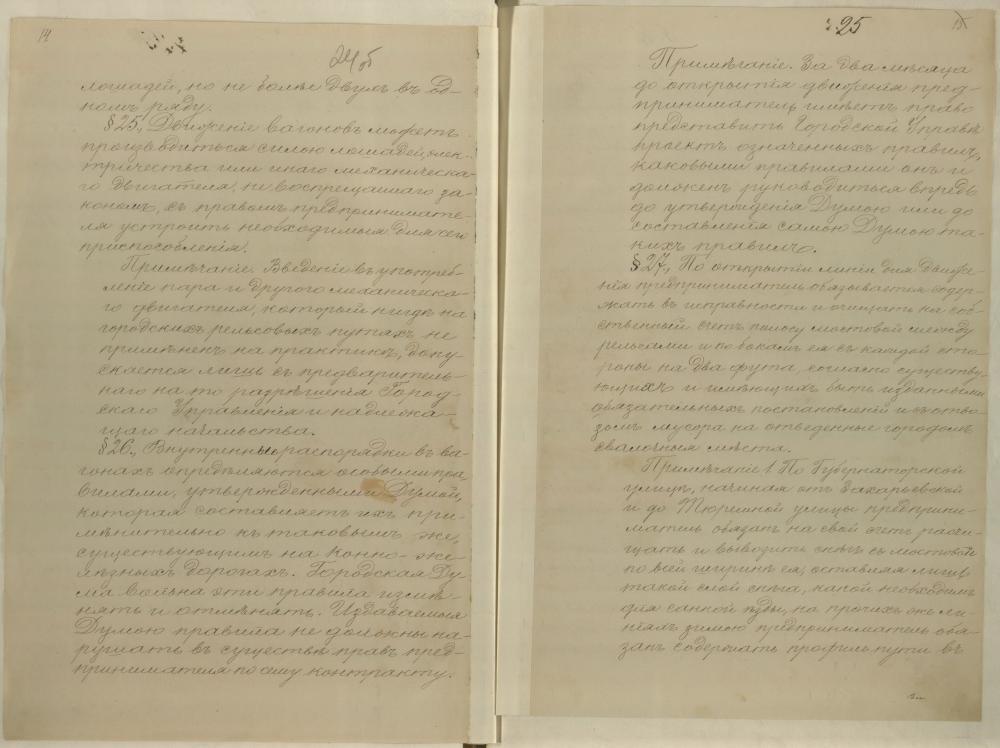 14
24 об
лошадей, но не болѣе двухъ въ од-
номъ ряду.
§ 25, Движеніе вагоновъ можетъ
производиться силою лошадей, элек-
тричества или инаго механическа-
го двигателя, не воспрещаемаго за-
кономъ, съ правомъ предпринимате-
ля устроить необходимыя для сего
приспособленія.
Примѣчаніе. Введеніе въ употреб-
леніе пара и другого механическа-
го двигателя, который нигдѣ на
городскихъ рельсовыхъ путяхъ не
примѣненъ на практикѣ, допу-
скается лишь съ предваритель-
наго на то разрѣшенія Город-
скаго Управленія и надлежа-
щаго начальства.
§ 26, Внутренніе распорядки въ ва-
гонахъ опредѣляются особыми пра-
вилами, утвержденными Думой,
которая составляетъ ихъ при-
мѣнительно къ таковымъ же,
существующимъ на конно-же-
лѣзныхъ дорогахъ. Городская Ду-
ма вольна эти правила измѣ-
нять и отмѣнять. Издаваемыя
Думою правила не должны на-
рушать въ существѣ правъ пред-
принимателя по сему контракту.
25
15
Примѣчаніе. За два мѣсяца
до открытія движенія пред-
приниматель имѣетъ право
представить Городской Управѣ
проектъ означенныхъ правилъ,
каковыми правилами онъ и
долженъ руководиться впредь
до утвержденія Думою или до
составленія самою Думою та-
кихъ правилъ.
§ 27, По открытіи линіи для движе-
нія предприниматель обязывается содер-
жать въ исправности и очищать на соб-
ственный счетъ полосу мостовой между
рельсами и по бокамъ ея съ каждой сто-
роны на два фута, согласно существу-
ющихъ и имѣющихъ быть изданными
обязательныхъ постановленій и съ отво-
зомъ мусора на отведенные городомъ
свалочныя мѣста.
Примѣчаніе 1. По Губернаторской
улицѣ, начиная отъ Захарьевской
и до Тюремной улицы предприни-
матель обязанъ на свой счетъ расчи-
щать и вывозить снѣгъ съ мостовой
по всей ширинѣ ея, оставляя лишь
такой слой снѣга, какой необходимъ
для санной ѣзды, на прочихъ же ли-
ніяхъ зимою предприниматель обя-
занъ содержать профиль пути въ